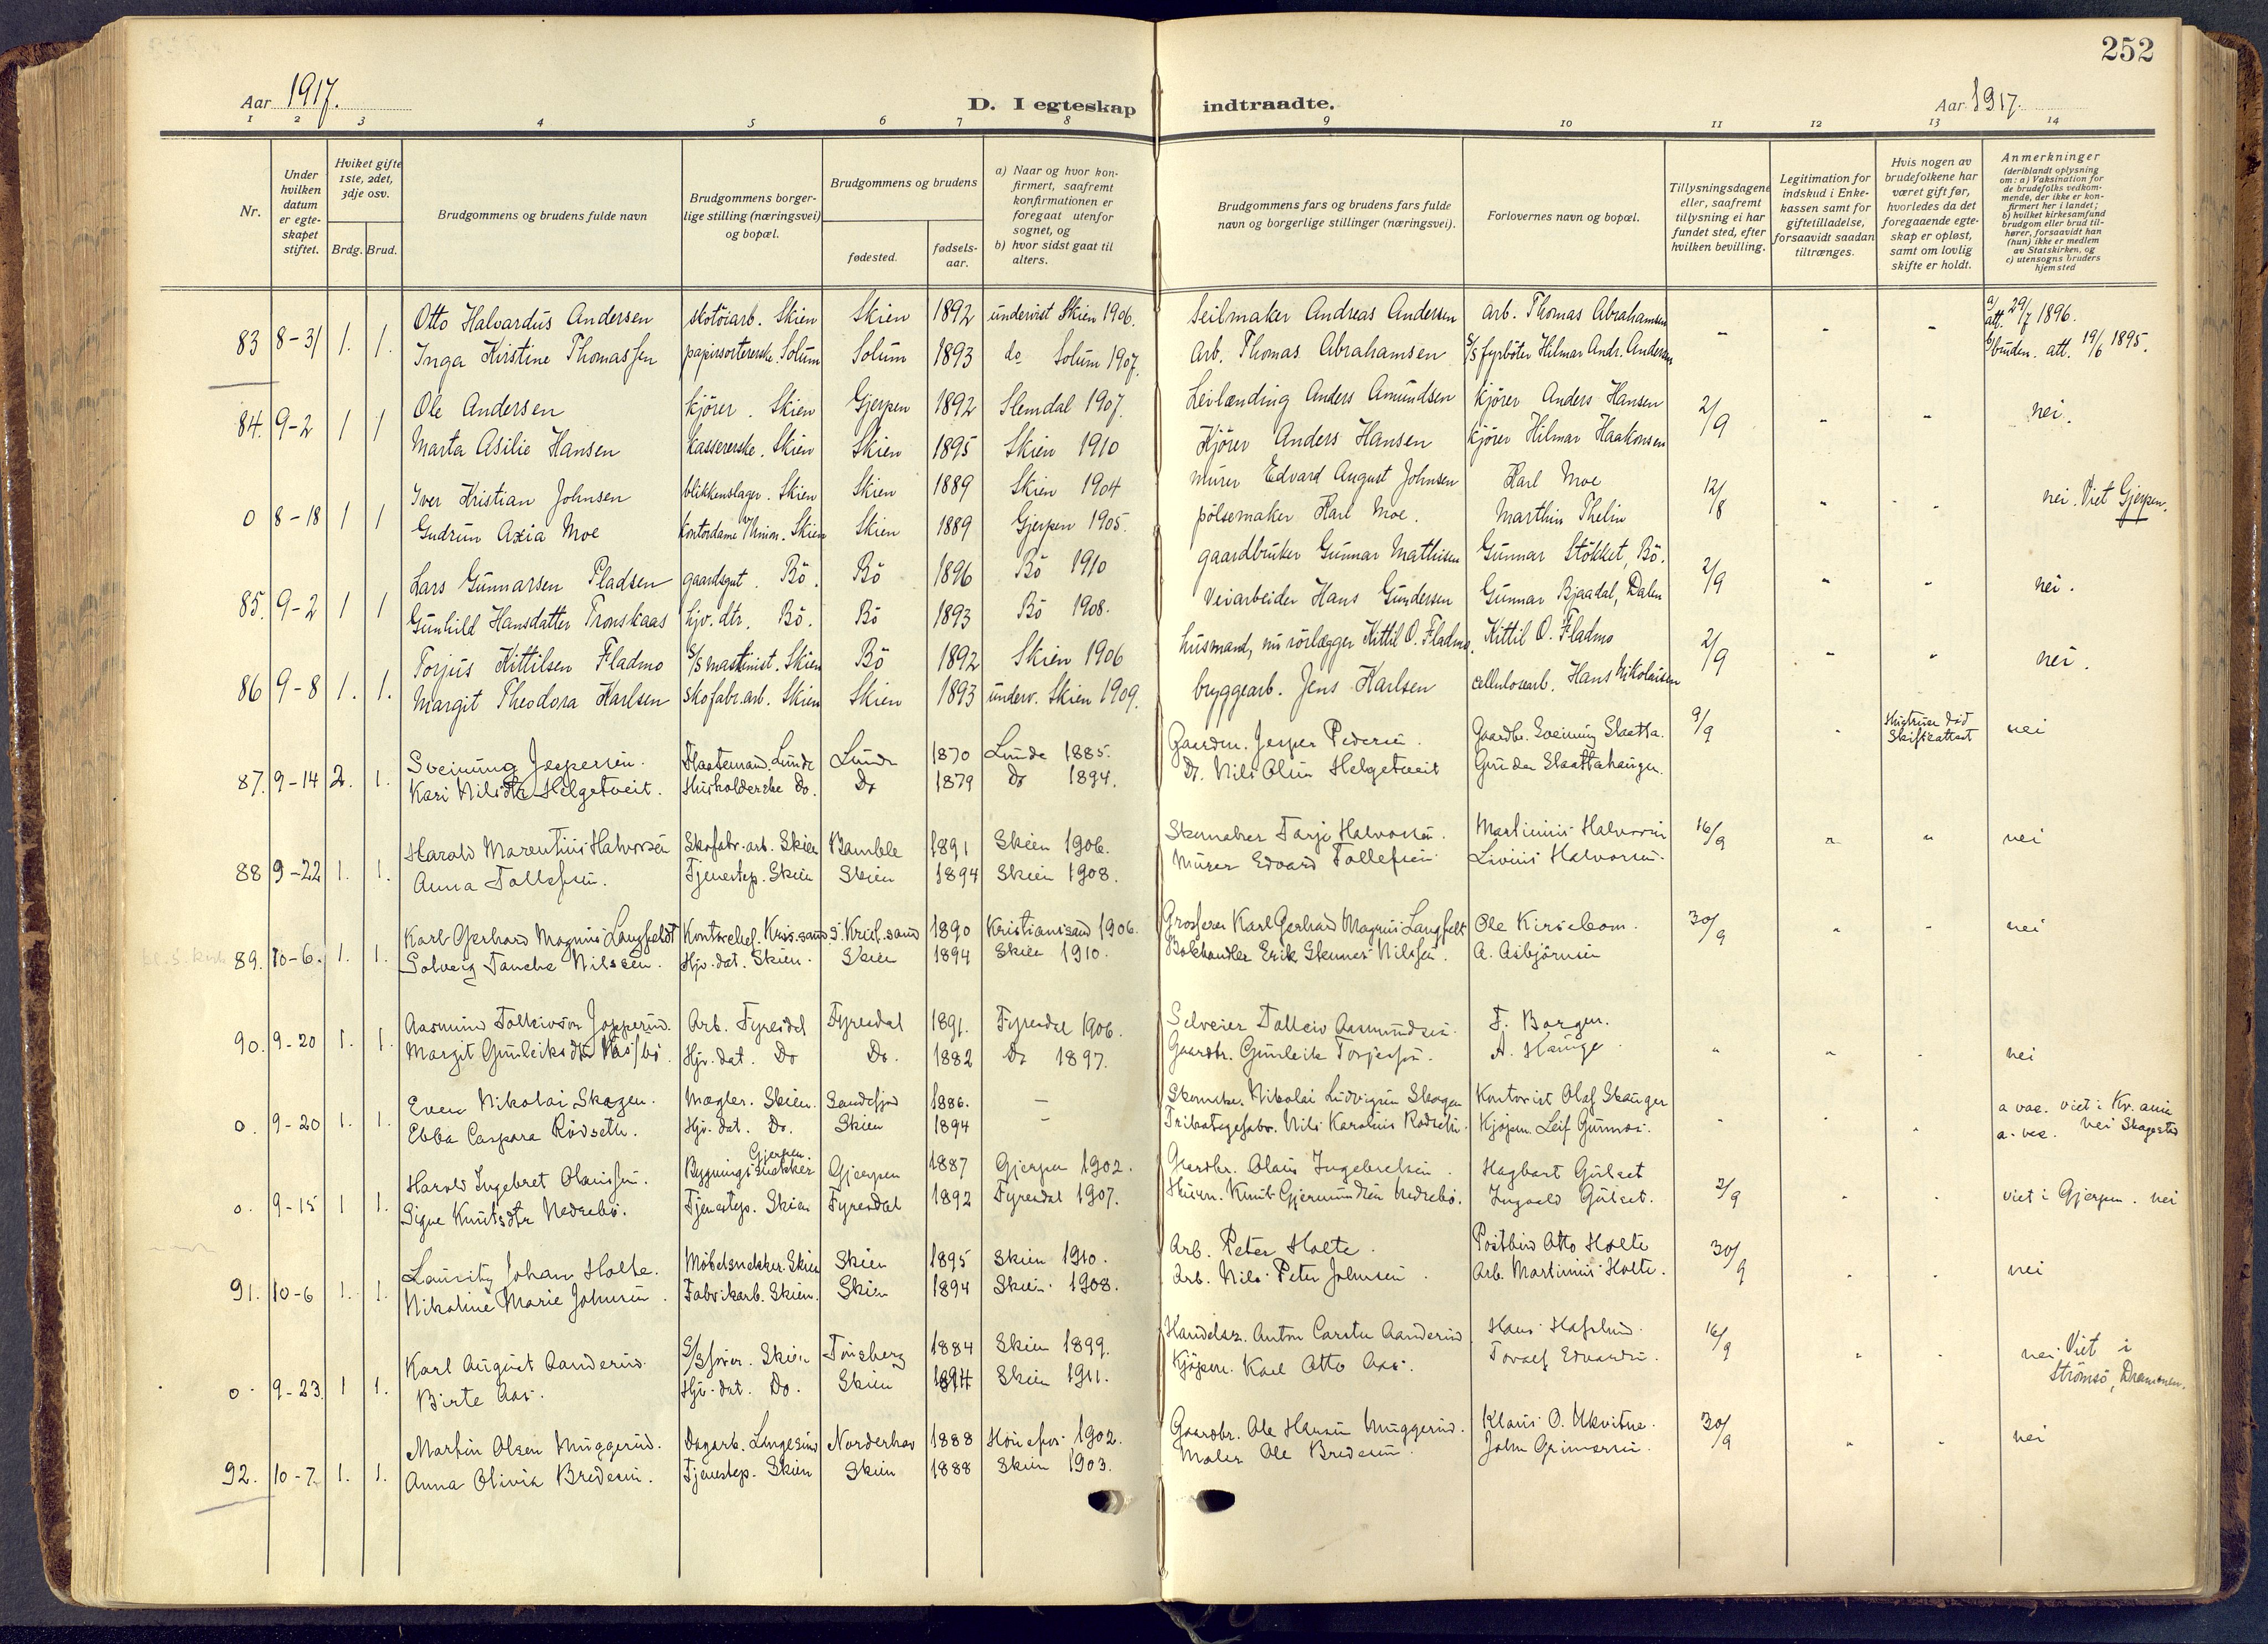 252
Aar 1917.
D. I egteskap indtraadte.
Aar 1917.
1 2 3 4 5 6 7 8 9 10 11 12 13 14
Nr.
Under hvilken datum er egteskapet stiftet.
Hvilket gifte 1ste, 2det, 3dje osv.
Brdg. Brud.
Brudgommens og brudens fulde navn
Brudgommens borgerlige stilling (næringsvei) og bopæl.
Brudgommens og brudens
fødested.
fødselsaar.
a) Naar og hvor konfirmert, saafremt konfirmationen er foregaat utenfor sognet, og
b) hvor sidst gaat til alters.
Brudgommens fars og brudens fars fulde navn og borgerlige stillinger (næringsvei).
Forlovernes navn og bopæl.
Tillysningsdagene eller, saafremt tillysning ei har fundet sted, efter hvilken bevilling.
Legitimation for indskud i Enkekassen samt for giftetilladelse, forsaavidt saadan tiltrænges.
Hvis nogen av brudefolkene har været gift før, hvorledes da det foregaaende egteskap er opløst, samt om lovlig skifte er holdt.
Anmerkninger (deriblandt oplysning om: a) Vaksination for de brudefolks vedkommende, der ikke er konfirmert her i landet; b) hvilket kirkesamfund brudgom eller brud tilhører, forsaavidt han (hun) ikke er medlem av Statskirken, og c) utensogns bruders hjemsted
83 8-31 1. 1. Otto Halvardus Andersen skotöiarb. Skien Skien 1892 undervist Skien 1906. Seilmaker Andreas Andersen arb. Thomas Abrahamsen - - - a/ att. 29/7 1896.
Inga Kirstine Thomassen papirsortererske. Solum Solum 1893 do Solum 1907. Arb. Thomas Abrahamsen S/S fyrböter Hilmar Andr. Andersen b/ bruden. att. 19/6 1895.
84. 9-2 1 1 Ole Andersen kjører. Skien Gjerpen 1892 Slemdal 1907. Leilænding Anders Amundsen kjører Anders Hansen 2/9 " " nei.
Marta Asilie Hansen kassererske. Skien Skien 1895 Skien 1910 Kjører Anders Hansen kjører Hilmar Haakonsen
0 8-18 1 1 Iver Kristian Johnsen blikkenslager. Skien Skien 1889 Skien 1904 murer Edvard August Johnsen Karl Moe 12/8 " " nei. Viet Gjerpen.
Gudrun Axia Moe kontordame v/Union. Skien Skien 1889 Gjerpen 1905. pölsemaker Karl Moe. Marthin Thelin
85. 9-2 1 1 Lars Gunnarsen Pladsen gaardsgut. Bö. Bö 1896 Bö 1910 gaardbruker Gunnar Mathisen Gunnar Stökket, Bö. 2/9 " " nei.
Gunhild Hansdatter Tronskaas hjv. dtr. Bö. Bö 1893 Bö 1908. Veiarbeider Hans Gundersen Gunnar Bjaadal, Dalen
86 9-8 1. 1. Torjus Kittilsen Fladmo S/S maskinist. Skien Bö 1892 Skien 1906 husmand, nu rörlægger Kittil O. Fladmo. Kittil O. Fladmo 2/9 " " nei.
Margit Theodora Karlsen skofabr.arb. Skien Skien 1893 underv. Skien 1909. bryggearb. Jens Karlsen cellulosearb. Hans Nikolaisen
87. 9-14 2. 1. Sveinung Jespersen. Lunde Lunde 1870 Lunde 1885. Gaardm. Jesper Pedersen. Gaardbr. Sveinung Slaatta. 9/9 " Skifteattest nei
Kari Nilsdtr Helgetveit. Husholderske Do. Do 1879 Do 1894. Do. Nils Olsen Helgetveit Slaattahaugen.
88 9-22 1. 1. Harald Marentius Halvorsen Skofabr.arb. Skien Bamble 1891 Skien 1906. Skomaker Tarje Halvorsen. Martinius Halvorsen 16/9 " " nei
Anna Tollefsen. Tjenestep. Skien Skien 1894 Skien 1908. Murer Edvard Tollefsen. Livius Halvorsen.
89. 10-6. 1. 1. Karl Gerhard Magnus Langfeldt Kontorchef. Kris.sand S. Krist.sand 1890 Kristiansand 1906. Grosserer Karl Gerhard Magnus Langfelt Ole Kirsebom. 30/9 " - nei
Solveig Tanche Nilssen. Hjv. dat. Skien. Skien 1894 Skien 1910. Bokhandler Erik Nilssen. A. Asbjörnsen
90. 9-20 1. 1. Aasmund Tolleivson Arb. Fyresdal Fyresdal 1891. Fyresdal 1906. Selveier Tolleiv Aasmundsen. F. Borgen.
Margit Gunleiksdtr Hjv. dat. Do Do. 1882 Do 1897. Gaardbr. Gunleik Torjessen. A. Hauge. " " . nei
0. 9-20 1. 1. Even Nikolai Skogen. Mægler. Skien. Sandefjord 1886. - Skomaker. Nikolai Ludvigsen Skogen Kontorist Olaf Skauger - . . a vac. viet i
Ebba Caspara Rödseth. Hjv. dat. Do. Skien 1894 - Trikotagefabr. Nils Karolius Rödseth. Kjöpm. Leif Gunnes. a. vac. nei
0. 9-15 1 1. Harald Ingebret Olaussen. Bygningssnekker Gjerpen. Gjerpen 1887 Gjerpen 1902. Gaardbr. Olaus Ingebretsen. Hagbart Gulset 2/9 . . viet i Gjerpen. nei
Signe Knutsdtr Nedrebö. Tjenestep. Skien Fyresdal 1892 Fyresdal 1907. Husm. Knut Gjermundsen Nedrebö. Ingvald Gulset.
91. 10-6 1. 1. Lauritz Johan Holte. Möbelsnekker. Skien Skien 1895 Skien 1910. Arb. Peter Holte. Postbud Otto Holte 30/9 . . nei
Nikoline Marie Johnsen. Fabrikarb. Skien. Skien 1894 Skien 1908. Arb. Nils Peter Johnsen. Arb. Martinius Holte.
0. 9-23. 1 1. Karl August Aanderud. Skien Tönsberg 1884 Skien 1899. Anton Carsten Aanderud Hans Hafslund. 16/9 " . nei Viet i
Birte Aas. Hjv. dat. Do. Skien 1894 Skien 1911. Kjöpm. Karl Otto Aas. Toralf Edvardsen. Strömsö, Drammen.
92. 10-7. 1. 1. Martin Olsen Muggerud. Dagarb. Langesund Norderhov 1888 Hönefos. 1902. Gaardbr. Ole Hansen Muggerud. Klaus O. Ukvitne. 30/9 " . nei
Anna Olivia Bredesen. Tjenestep. Skien Skien 1888 Skien 1903. Maler Ole Bredesen. John Grimersen.